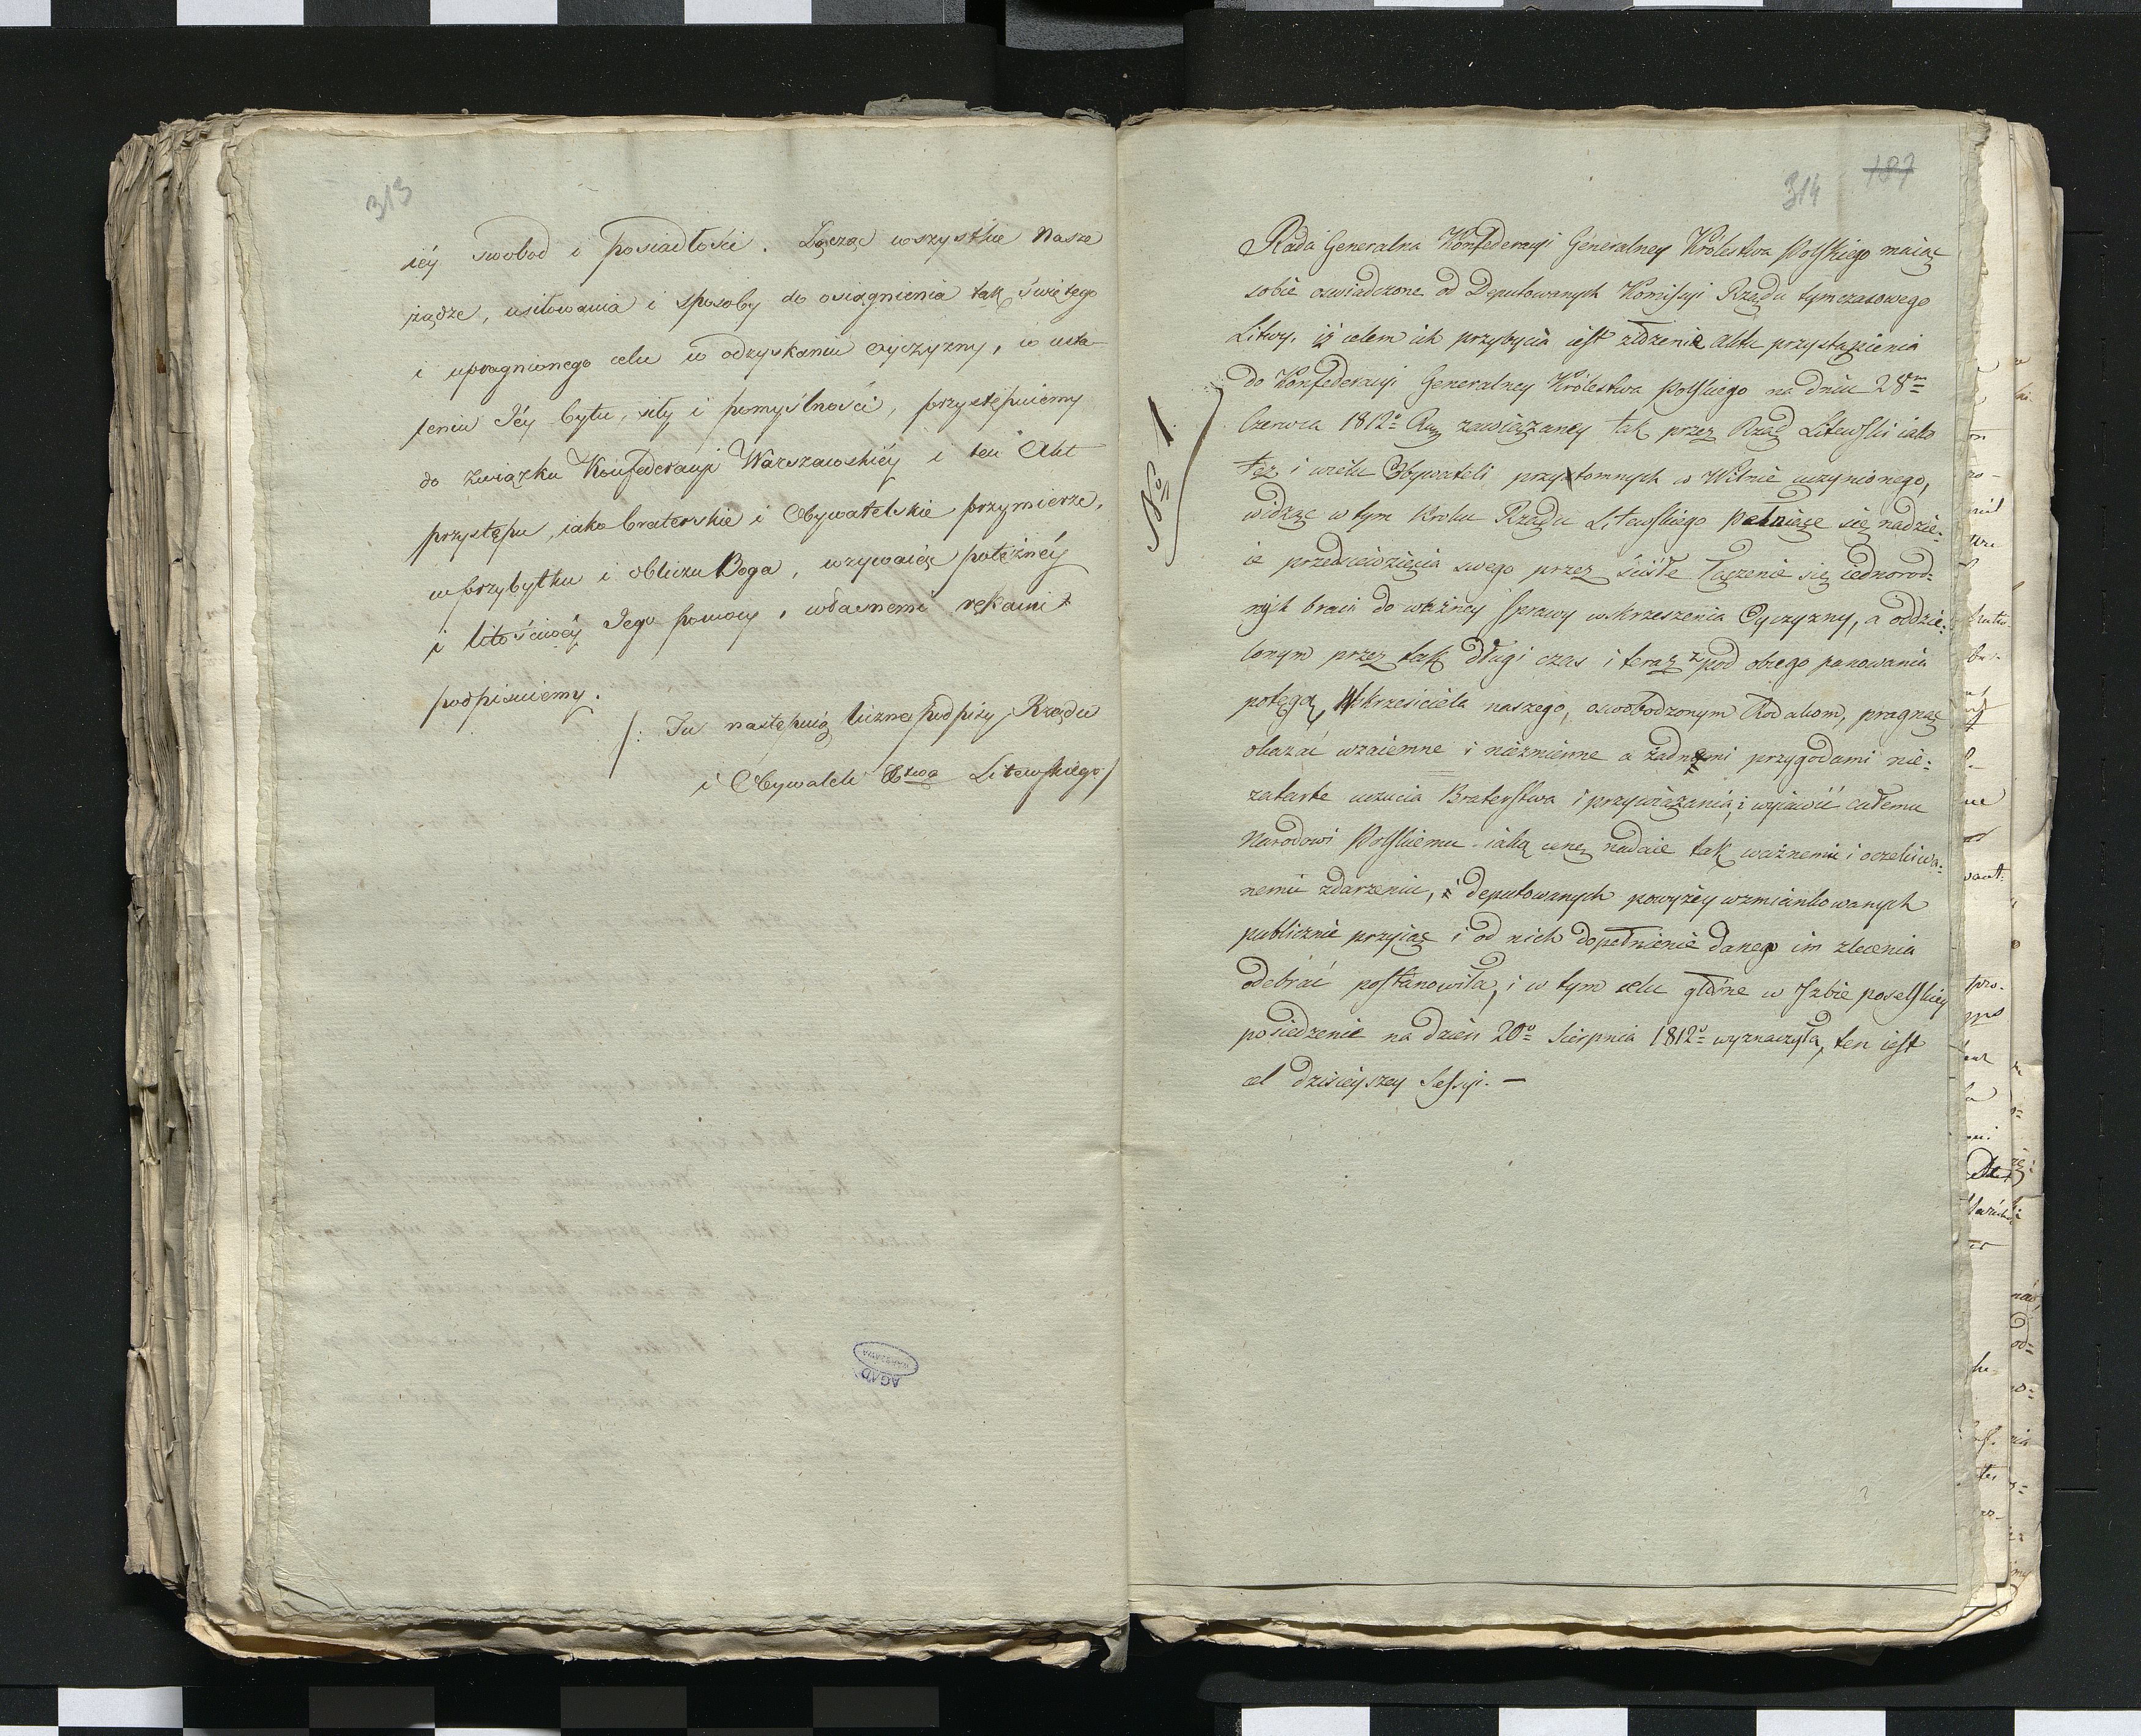 313
iéy swobod i posiadłości. Łącząc wszystkie nasze
żądze, usiłowania i sposoby do osiągnienia tak świętego
i upragnionego celu w odzyskaniu oyczyzny, w usta-
leniu Jéy bytu, siły i pomyślności, przystępuiemy
do związku Konfederacyi Warszawskiéy i ten Akt
przystępu, iako braterskie i Obywatelskie przymierze,
w przybytku i obliczu Boga, wzywaiąc potężnéy
i litościwéy Jego pomocy, własnemi rękami
podpisuiemy.
/: Tu następuią liczne podpisy Rządu
i Obywateli Xtwa Litewskiego/
AGAD
WARSZAWA
314 187
No 1
Rada Generalna Konfederacyi Generalney Królestwa Polskiego maiąc
sobie oswiadczone od Deputowanych Komissyi Rządu tymczasowego
Litwy, iż celem ich przybycia iest złożenie Aktu przystąpienia
do Konfederacyi Generalney Królestwa Polskiego na dniu 28m
Czerwca 1812o Roku zawiązaney tak przez Rząd Litewski iako
też i wielu Obywateli przytomnych w Wilnie uczynionego,
widząc w tym kroku Rządu Litewskiego pełniące się nadzie:
ie przedsięwzięcia swego przez ściśłe łączenie się iednorod:
nych braci do ważney sprawy wskrzeszenia Oyczyzny, a oddzie:
lonym przez tak długi czas i teraz z pod obcego panowania
potęgą Wskrzesiciela naszego, oswobodzonym Rodakom, pragnąc
okazać wzaiemne i niezmienne a żadnemi przygodami nie:
zatarte uczucia Braterstwa i przywiązania, i wyiawić całemu
Narodowi Polskiemu iaką cenę nadaie tak ważnemu i oczekiwa:
nemu zdarzeniu, i deputowanych powyżey wzmiankowanych
publicznie przyiąć i od nich dopełnienie danego im zlecenia
odebrać postanowiła, i w tym celu główne w Izbie poselskiey
posiedzenie na dzień 20o Sierpnia 1812o wyznaczyła, ten iest
cel dzisieyszey Sessyi. —